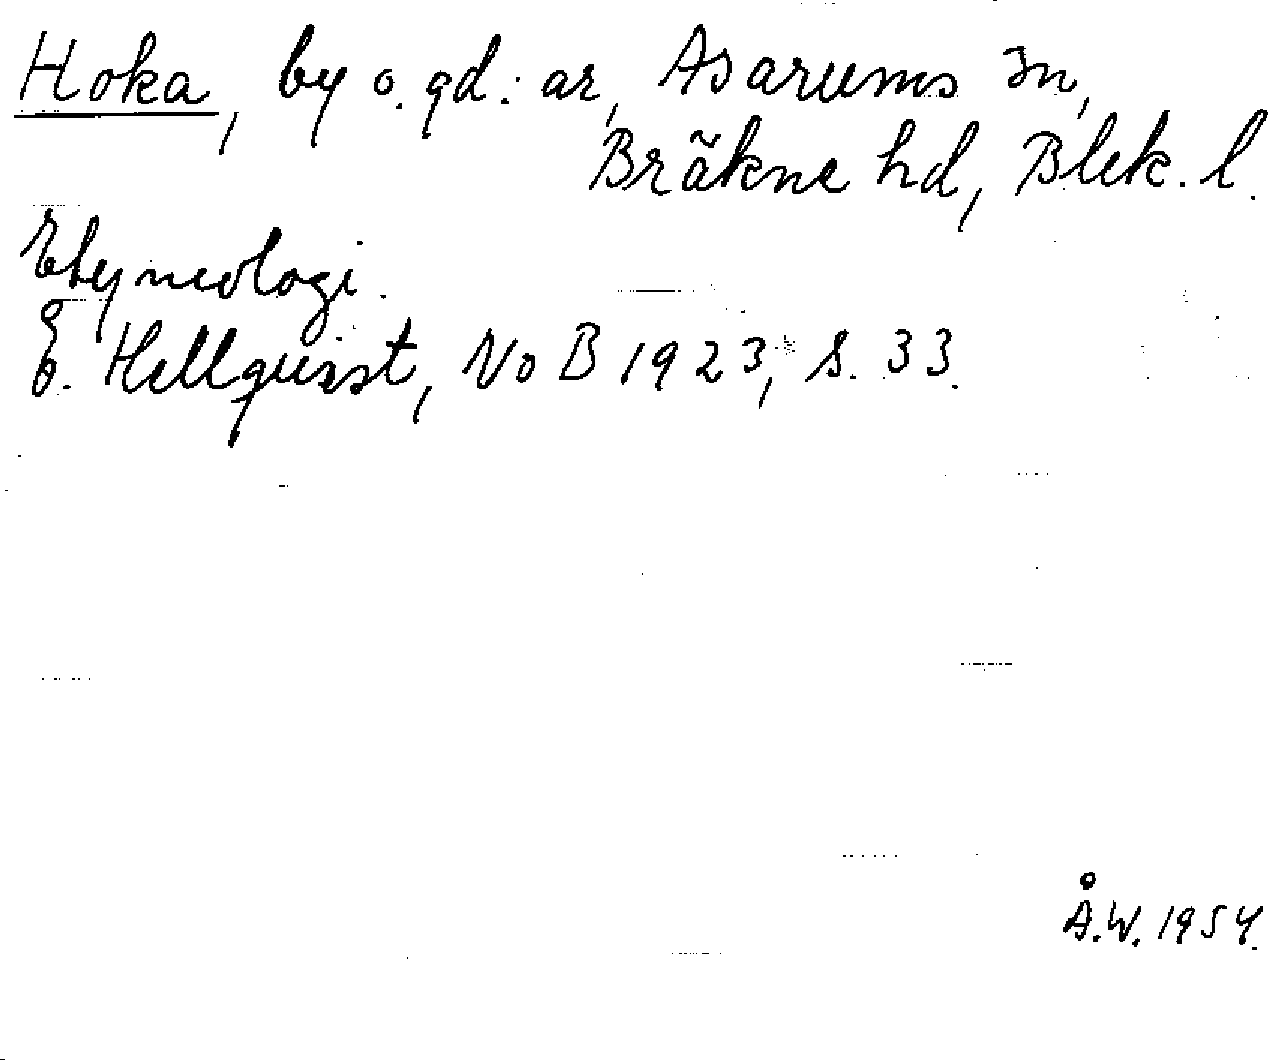 Hoka, by o. gd: ar, Asarums sn,
Bräkne hd, Blek. l.
Etymologi.
E. Hellquist, NoB 1923, s. 33.
Å.W. 1954.